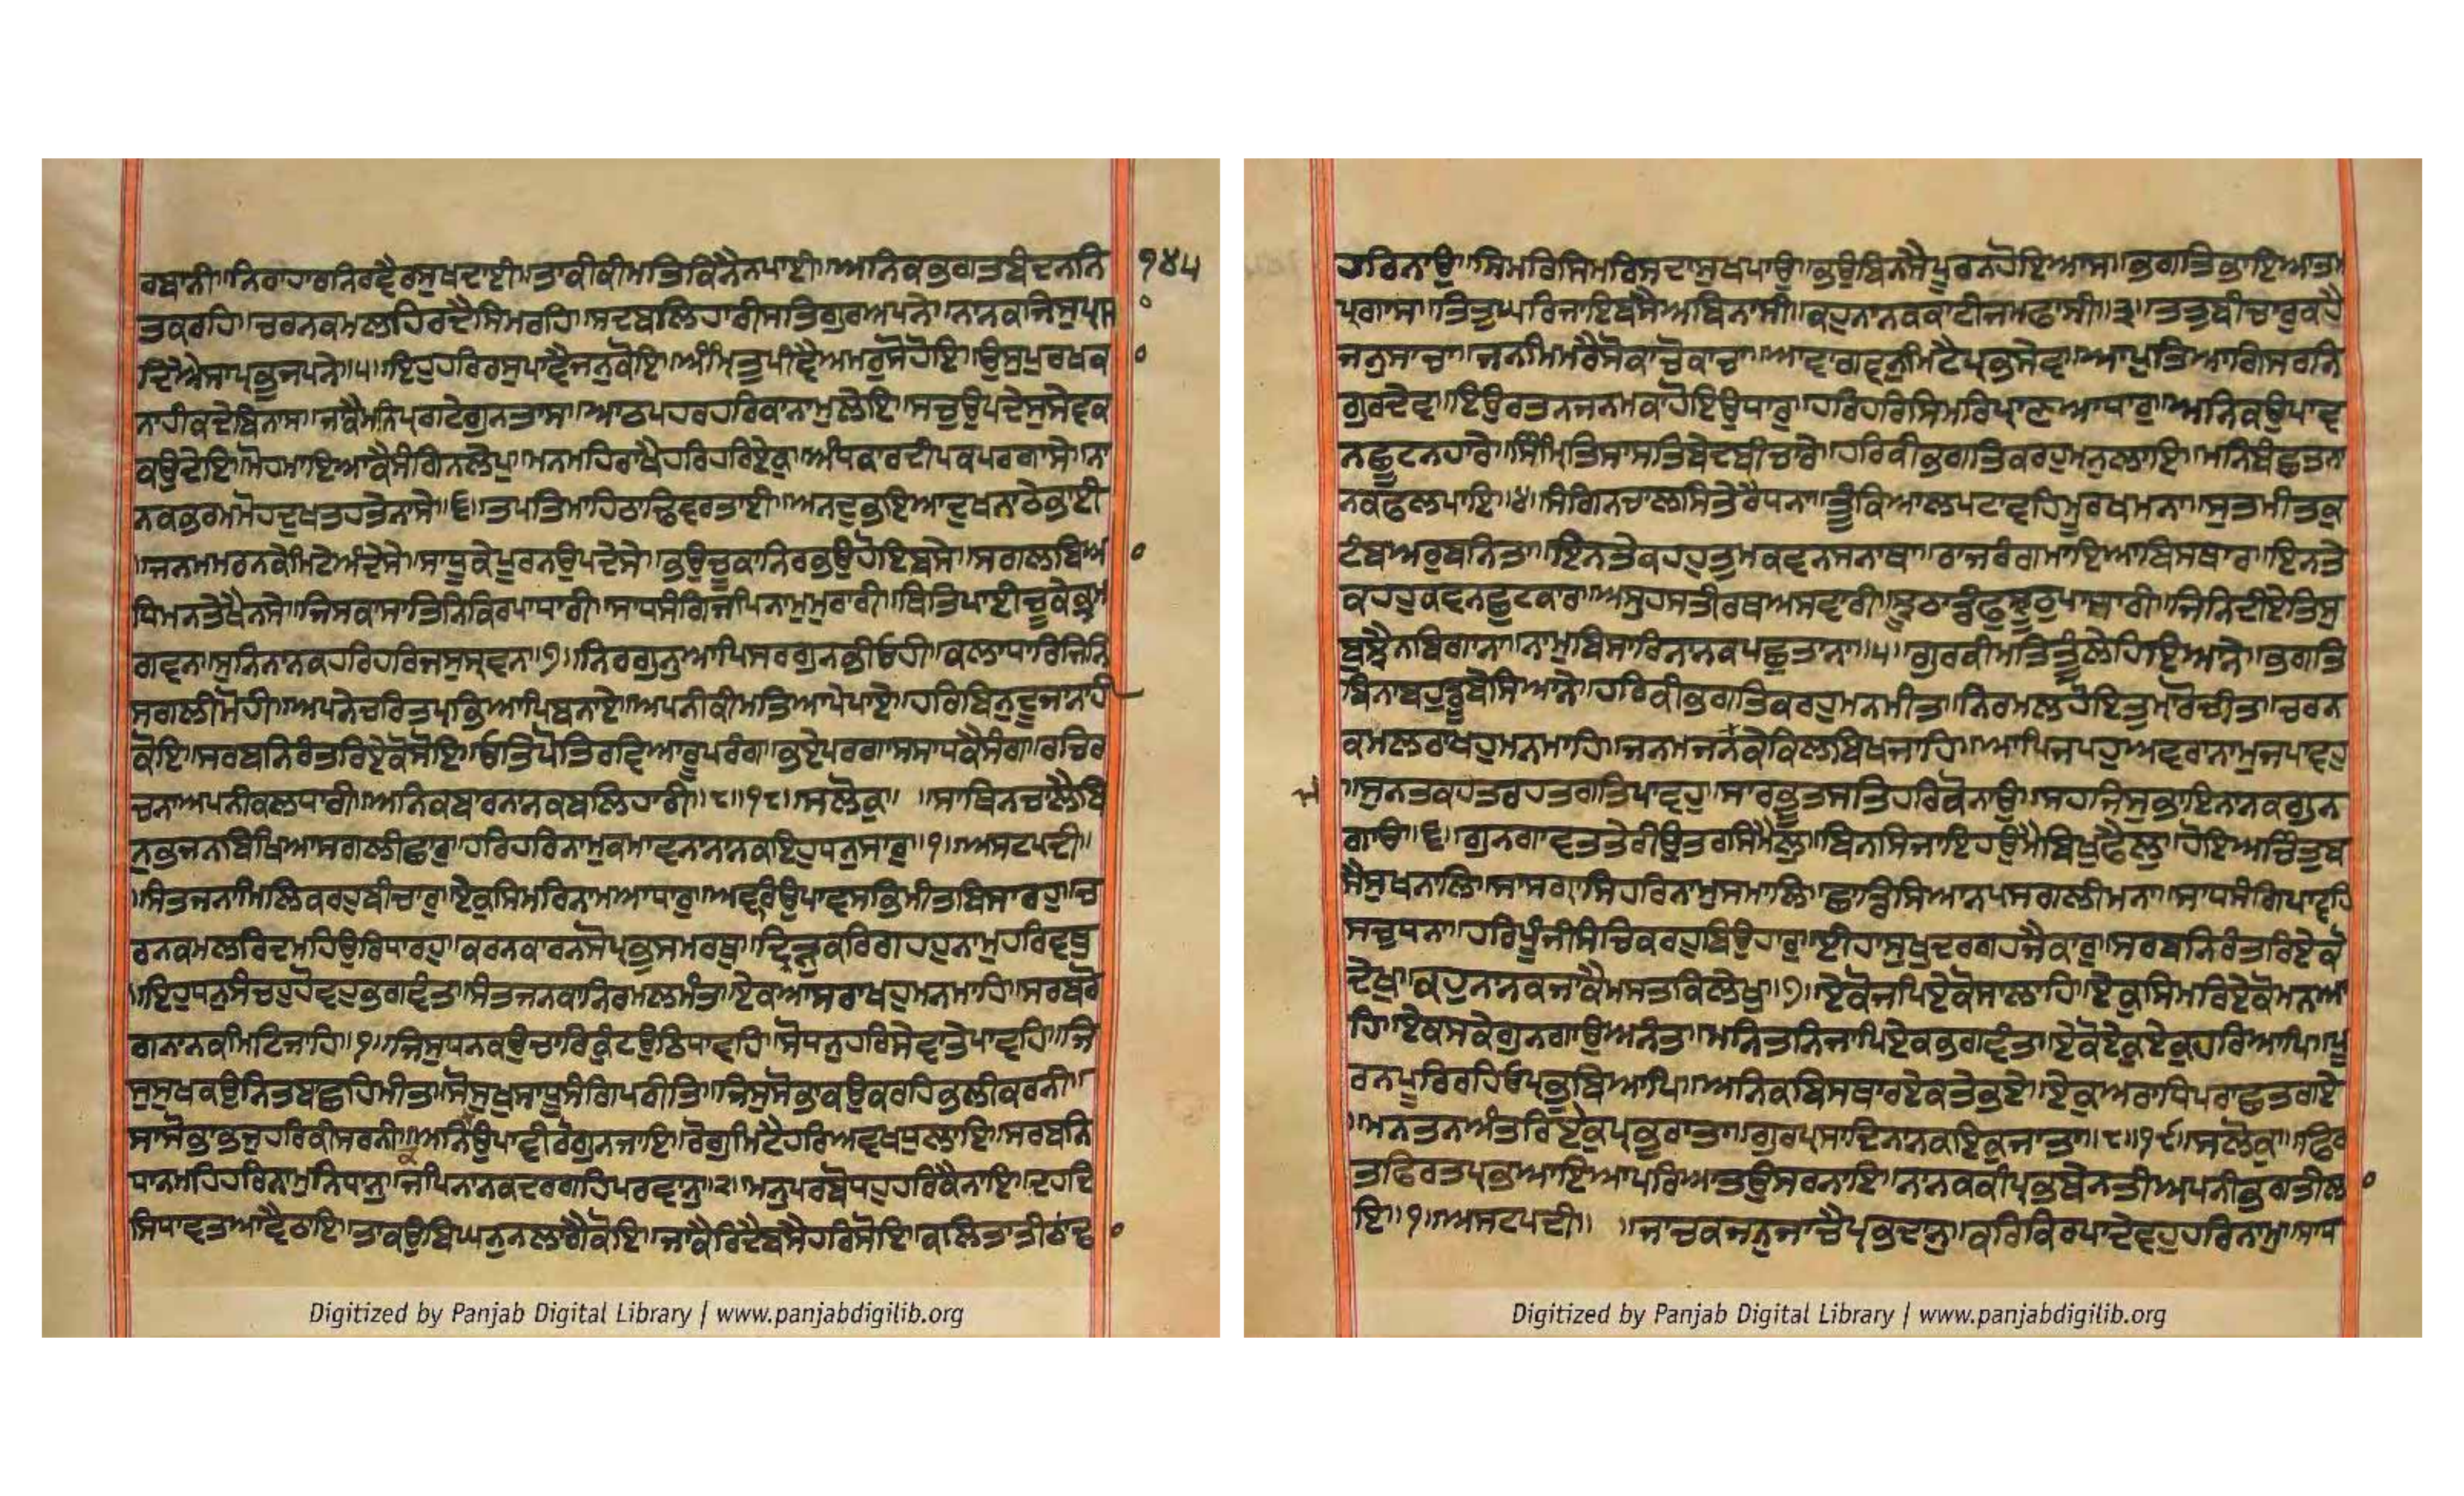 ਰਬਾਨੀ॥ਨਿਰਾਹਾਰਨਿਰਵੈਰਸੁਖਦਾਈ॥ਤਾਕੀਕੀਮਤਿਕਿਨੈਨਪਾਈ॥ਅਨਿਕਭਗਤਬੰਦਨਨਿ ੧੪੫
ਤਕਰਹਿ॥ਚਰਨਕਮਲਹਿਰਦੈਸਿਮਰਹਿ॥ਸਦਬਲਿਹਾਰੀਸਤਿਗੁਰਅਪਨੇ॥ਨਾਨਕਜਿਸੁਪ੍ਰਸਾ
ਦਿਐਸਾਪ੍ਰਭੁਜਪਨੇ॥੫॥ਇਹੁਹਰਿਰਸੁਪਾਵੈਜਨੁਕੋਇ॥ਅੰਮ੍ਰਿਤੁਪੀਵੈਅਮਰੁਸੋਹੋਇ॥ਉਸੁਪੁਰਖਕਾ
ਨਾਹੀਕਦੇਬਿਨਾਸ॥ਜਾਕੈਮਨਿਪ੍ਰਗਟੇਗੁਨਤਾਸ॥ਆਠਪਹਰਹਰਿਕਾਨਾਮੁਲੇਇ॥ਸਚੁਉਪਦੇਸੁਸੇਵਕ
ਕਉਦੇਇ॥ਮੋਹਮਾਇਆਕੈਸੰਗਿਨਲੇਪੁ॥ਮਨਮਹਿਰਾਖੈਹਰਿਹਰਿਏਕੁ॥ਅੰਧਕਾਰਦੀਪਕਪਰਗਾਸੇ॥ਨਾ
ਨਕਭਰਮਮੋਹਦੁਖਤਹਤੇਨਾਸੇ॥੬॥ਤਪਤਿਮਾਹਿਠਾਢਿਵਰਤਾਈ॥ਅਨਦੁਭਇਆਦੁਖਨਾਠੇਭਾਈ
॥ਜਨਮਮਰਨਕੇਮਿਟੇਅੰਦੇਸੇ॥ਸਾਧੂਕੇਪੂਰਨਉਪਦੇਸੇ॥ਭਉਚੂਕਾਨਿਰਭਉਹੋਇਬਸੇ॥ਸਗਲਬਿਆ
ਧਿਮਨਤੇਖੈਨਸੇ॥ਜਿਸਕਾਸਾਤਿਨਿਕਿਰਪਾਧਾਰੀ॥ਸਾਧਸੰਗਿਜਪਿਨਾਮੁਮੁਰਾਰੀ॥ਥਿਤਿਪਾਈਚੂਕੇਭ੍ਰਮ
ਗਵਨ॥ਸੁਨਿਨਾਨਕਹਰਿਹਰਿਜਸੁਸ੍ਰਵਨ॥੭॥ਨਿਰਗੁਨੁਆਪਿਸਰਗੁਨਭੀਓਹੀ॥ਕਲਾਧਾਰਿਜਿਨਿ
ਸਗਲੀਮੋਹੀ॥ਅਪਨੇਚਰਿਤਪ੍ਰਭਿਆਪਿਬਨਾਏ॥ਅਪਨੀਕੀਮਤਿਆਪੇਪਾਏ॥ਹਰਿਬਿਨੁਦੂਜਾਨਾਹੀ
ਕੋਇ॥ਸਰਬਨਿਰੰਤਰਿਏਕੋਸੋਇ॥ਓਤਿਪੋਤਿਰਵਿਆਰੂਪਰੰਗ॥ਭਏਪ੍ਰਗਾਸਸਾਧਕੈਸੰਗ॥ਰਚਿਰ
ਚਨਾਅਪਨੀਕਲਧਾਰੀ॥ਅਨਿਕਬਾਰਨਾਨਕਬਲਿਹਾਰੀ॥੮॥੧੮॥ਸਲੋਕੁ॥ ॥ਸਾਥਿਨਚਾਲੈਬਿ
ਨੁਭਜਨਬਿਖਿਆਸਗਲੀਛਾਰੁ॥ਹਰਿਹਰਿਨਾਮੁਕਮਾਵਨਾਨਾਨਕਇਹੁਧਨੁਸਾਰੁ॥੧॥ਅਸਟਪਦੀ॥
॥ਸੰਤਜਨਾਮਿਲਿਕਰਹੁਬੀਚਾਰੁ॥ਏਕੁਸਿਮਰਿਨਾਮਆਧਾਰੁ॥ਅਵਰਿਉਪਾਵਸਭਿਮੀਤਬਿਸਾਰਹੁ॥ਚ
ਰਨਕਮਲਰਿਦਮਹਿਉਰਿਧਾਰਹੁ॥ਕਰਨਕਾਰਨਸੋਪ੍ਰਭੁਸਮਰਥੁ॥ਦ੍ਰਿੜੁਕਰਿਗਹਹੁਨਾਮੁਹਰਿਵਥੁ
॥ਇਹੁਧਨੁਸੰਚਹੁਹੋਵਹੁਭਗਵੰਤ॥ਸੰਤਜਨਕਾਨਿਰਮਲਮੰਤ॥ਏਕਆਸਰਾਖਹੁਮਨਮਾਹਿ॥ਸਰਬਰੋ
ਗਨਾਨਕਮਿਟਿਜਾਹਿ॥੧॥ਜਿਸੁਧਨਕਉਚਾਰਿਕੁੰਟਉਠਿਧਾਵਹਿ॥ਸੋਧਨੁਹਰਿਸੇਵਾਤੇਪਾਵਹਿ॥ਜਿ
ਸੁਸੁਖਕਉਨਿਤਬਾਛਹਿਮੀਤ॥ਸੋਸੁਖੁਸਾਧੂਸੰਗਿਪਰੀਤਿ॥ਜਿਸੁਸੋਭਾਕਉਕਰਹਿਭਲੀਕਰਨੀ॥
ਸਾਸੋਭਾਭਜੁਹਰਿਕੀਸਰਨੀ॥ਅਨਿਉਪਾਵੀਰੋਗੁਨਜਾਇ॥ਰੋਗੁਮਿਟੈਹਰਿਅਵਖਧੁਲਾਇ॥ਸਰਬਨਿ
ਧਾਨਮਹਿਹਰਿਨਾਮੁਨਿਧਾਨੁ॥ਜਪਿਨਾਨਕਦਰਗਹਿਪਰਵਾਨੁ॥੨॥ਮਨੁਪਰਬੋਧਹੁਹਰਿਕੈਨਾਇ॥ਦਹਦਿ
ਸਿਧਾਵਤਆਵੈਠਾਇ॥ਤਾਕਉਬਿਘਨੁਨਲਾਗੈਕੋਇ॥ਜਾਕੈਰਿਦੈਬਸੈਹਰਿਸੋਇ॥ਕਲਿਤਾਤੀਠਾਂਢਾ
ਹਰਿਨਾਉ॥ਸਿਮਰਿਸਿਮਰਿਸਦਾਸੁਖਪਾਉ॥ਭਉਬਿਨਸੈਪੂਰਨਹੋਇਆਸ॥ਭਗਤਿਭਾਇਆਤਮ
ਪ੍ਰਗਾਸ॥ਤਿਤੁਘਰਿਜਾਇਬਸੈਅਬਿਨਾਸੀ॥ਕਹੁਨਾਨਕਕਾਟੀਜਮਫਾਸੀ॥੩॥ਤਤੁਬੀਚਾਰੁਕਹੈ
ਜਨੁਸਾਚਾ॥ਜਨਮਿਮਰੈਸੋਕਾਚੋਕਾਚਾ॥ਆਵਾਗਵਨੁਮਿਟੈਪ੍ਰਭਸੇਵ॥ਆਪੁਤਿਆਗਿਸਰਨਿ
ਗੁਰਦੇਵ॥ਇਉਰਤਨਜਨਮਕਾਹੋਇਉਧਾਰੁ॥ਹਰਿਹਰਿਸਿਮਰਿਪ੍ਰਾਣਆਧਾਰੁ॥ਅਨਿਕਉਪਾਵ
ਨਛੂਟਨਹਾਰੇ॥ਸਿੰਮ੍ਰਿਤਿਸਾਸਤਿਬੇਦਬੀਚਾਰੇ॥ਹਰਿਕੀਭਗਤਿਕਰਹੁਮਨੁਲਾਇ॥ਮਨਿਬੰਛਤਨਾ
ਨਕਫਲਪਾਇ॥੪॥ਸੰਗਿਨਚਾਲਸਿਤੇਰੈਧਨਾ॥ਤੂੰਕਿਆਲਪਟਾਵਹਿਮੂਰਖਮਨਾ॥ਸੁਤਮੀਤਕੁ
ਟੰਬਅਰੁਬਨਿਤਾ॥ਇਨਤੇਕਹਹੁਤੁਮਕਵਨਸਨਾਥਾ॥ਰਾਜਰੰਗਮਾਇਆਬਿਸਥਾਰ॥ਇਨਤੇ
ਕਹਹੁਕਵਨਛੁਟਕਾਰ॥ਅਸੁਹਸਤੀਰਥਅਸਵਾਰੀ॥ਝੂਠਾਡੰਫੁਝੂਠੁਪਾਸਾਰੀ॥ਜਿਨਿਦੀਏਤਿਸੁ
ਬੁਝੈਨਬਿਗਾਨਾ॥ਨਾਮੁਬਿਸਾਰਿਨਾਨਕਪਛੁਤਾਨਾ॥੫॥ਗੁਰਕੀਮਤਿਤੂੰਲੇਹਿਇਆਨੇ॥ਭਗਤਿ
ਬਿਨਾਬਹੁਡੂਬੇਸਿਆਨੇ॥ਹਰਿਕੀਭਗਤਿਕਰਹੁਮਨਮੀਤ॥ਨਿਰਮਲਹੋਇਤੁਮਾਰੋਚੀਤ॥ਚਰਨ
ਕਮਲਰਾਖਹੁਮਨਮਾਹਿ॥ਜਨਮਜਨਮਕੇਕਿਲਬਿਖਜਾਹਿ॥ਆਪਿਜਪਹੁਅਵਰਾਨਾਮੁਜਪਾਵਹੁ
॥ਸੁਨਤਕਹਤਰਹਤਗਤਿਪਾਵਹੁ॥ਸਾਰਭੂਤਸਤਿਹਰਿਕੋਨਾਉ॥ਸਹਜਿਸੁਭਾਇਨਾਨਕਗੁਨ
ਗਾਉ॥੬॥ਗੁਨਗਾਵਤਤੇਰੀਉਤਰਸਿਮੈਲੁ॥ਬਿਨਸਿਜਾਇਹਉਮੈਬਿਖੁਫੈਲੁ॥ਹੋਇਅਚਿੰਤੁਬ
ਸੈਸੁਖਨਾਲਿ॥ਸਾਸਗ੍ਰਾਸਿਹਰਿਨਾਮੁਸਮਾਲਿ॥ਛਾਡਿਸਿਆਨਪਸਗਲੀਮਨਾ॥ਸਾਧਸੰਗਿਪਾਵਹਿ
ਸਚੁਧਨਾ॥ਹਰਿਪੂੰਜੀਸੰਚਿਕਰਹੁਬਿਉਹਾਰੁ॥ਈਹਾਸੁਖੁਦਰਗਹਜੈਕਾਰੁ॥ਸਰਬਨਿਰੰਤਰਿਏਕੋ
ਦੇਖੁ॥ਕਹੁਨਾਨਕਜਾਕੈਮਸਤਕਿਲੇਖੁ॥੭॥ਏਕੋਜਪਿਏਕੋਸਾਲਾਹਿ॥ਏਕੁਸਿਮਰਿਏਕੋਮਨਆ
ਹਿ॥ਏਕਸਕੇਗੁਨਗਾਉਅਨੰਤ॥ਮਨਿਤਨਿਜਾਪਿਏਕਭਗਵੰਤ॥ਏਕੋਏਕੁਏਕੁਹਰਿਆਪਿ॥ਪੂ
ਰਨਪੂਰਿਰਹਿਓਪ੍ਰਭੁਬਿਆਪਿ॥ਅਨਿਕਬਿਸਥਾਰਏਕਤੇਭਏ॥ਏਕੁਅਰਾਧਿਪਰਾਛਤਗਏ
॥ਮਨਤਨਅੰਤਰਿਏਕੁਪ੍ਰਭੁਰਾਤਾ॥ਗੁਰਪ੍ਰਸਾਦਿਨਾਨਕਇਕੁਜਾਤਾ॥੮॥੧੯॥ਸਲੋਕੁ॥ਫਿਰ
ਤਫਿਰਤਪ੍ਰਭਆਇਆਪਰਿਆਤਉਸਰਨਾਇ॥ਨਾਨਕਕੀਪ੍ਰਭਬੇਨਤੀਅਪਨੀਭਗਤੀਲਾ
ਇ॥੧॥ਅਸਟਪਦੀ॥ ॥ਜਾਚਕਜਨੁਜਾਚੈਪ੍ਰਭਦਾਨੁ॥ਕਰਿਕਿਰਪਾਦੇਵਹੁਹਰਿਨਾਮੁ॥ਸਾਧ
Digitized by Panjab Digital Library | www.panjabdigilib.org
Digitized by Panjab Digital Library | www.panjabdigilib.org